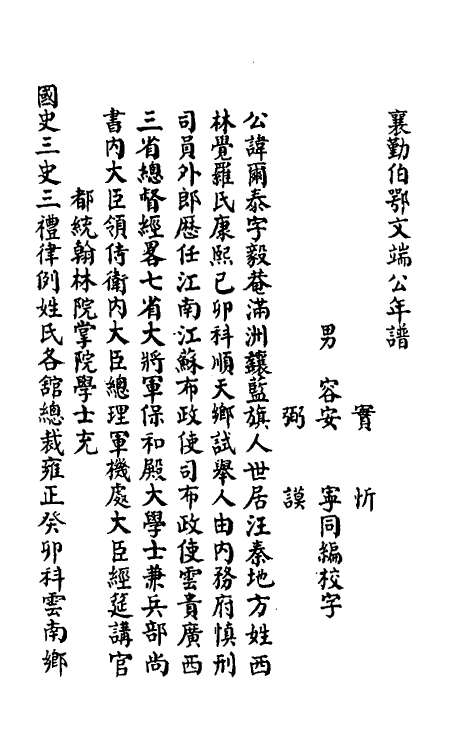 襄勤伯鄂文端公年譜
實　忻
男　容安　寧同編校字
弼　謨
公諱爾泰字毅菴滿洲鑲藍旗人世居汪秦地方姓西
林覺羅氏康熙己卯科順天鄉試舉人由內務府慎刑
司員外郎歷任江南江蘇布政使司布政使雲貴廣西
三省總督經畧七省大將軍保和殿大學士兼兵部尚
書內大臣領侍衛內大臣總理軍機處大臣經筵講官
都統翰林院掌院學士充
國史三史三禮律例姓氏各舘總裁雍正癸卯科雲南鄉